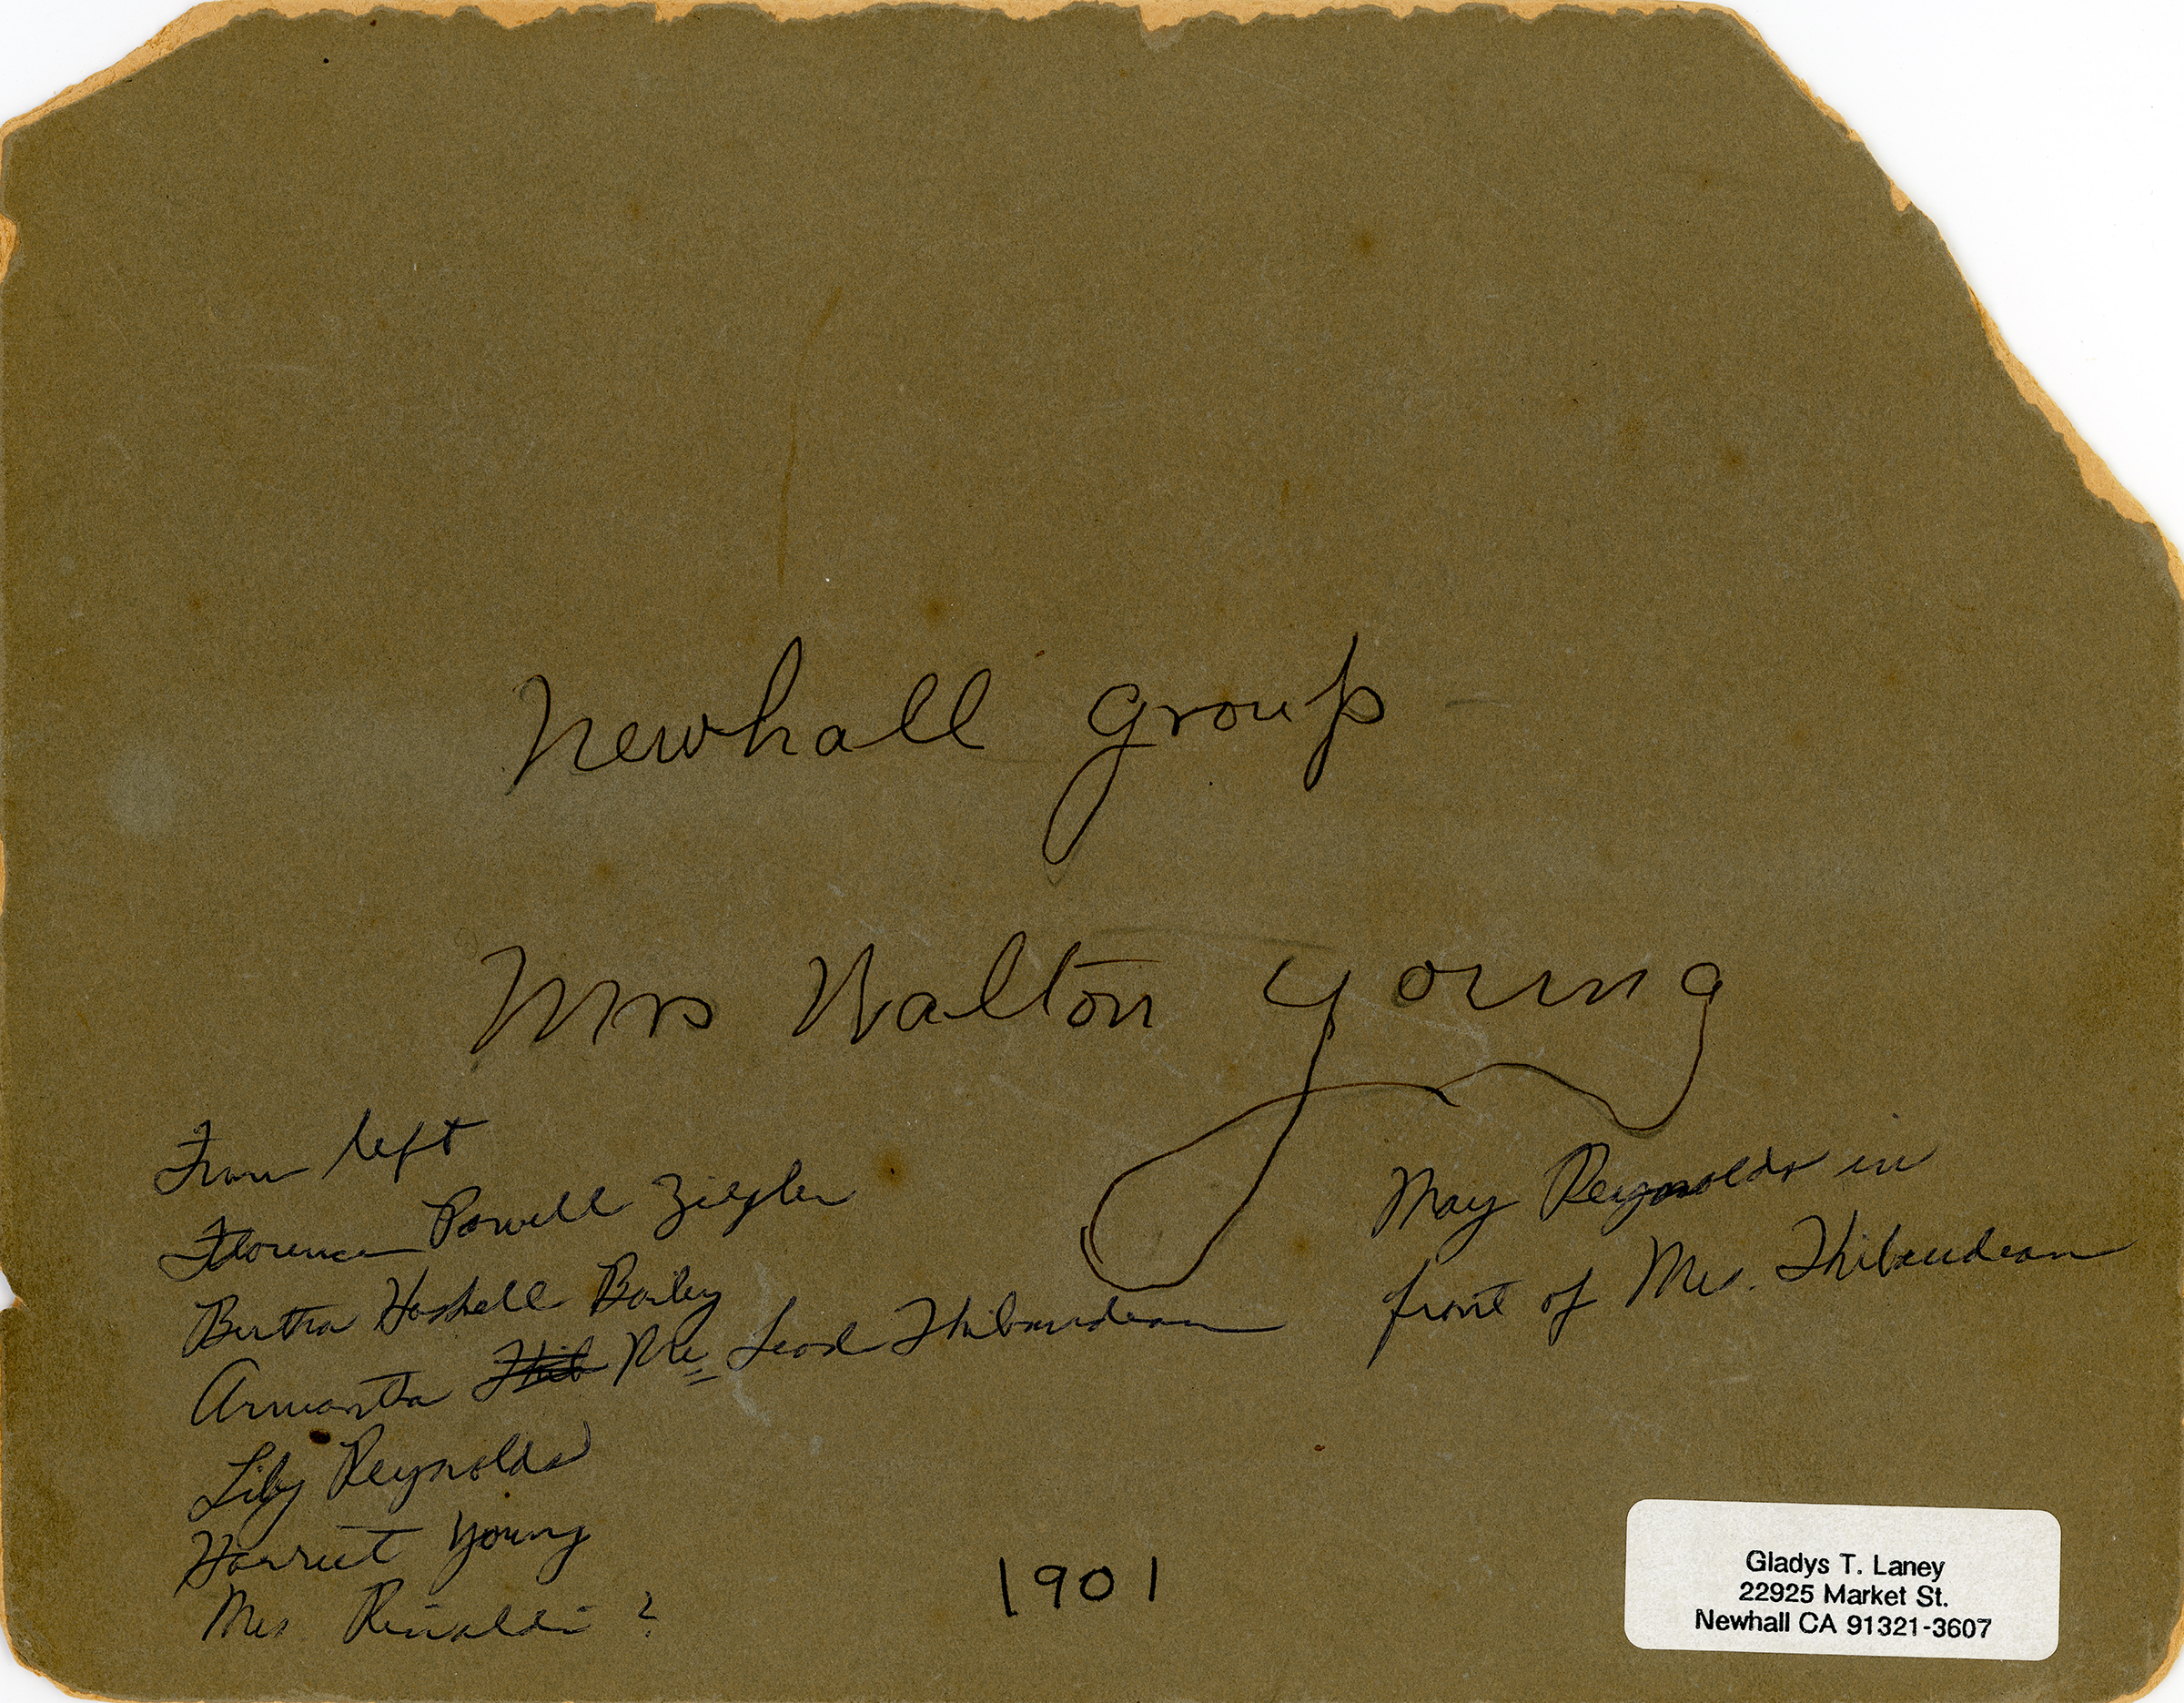 Newhall group -
Mrs Walton Young
From left
Florence Powell Ziegler
Bertha Haskell Bailey
Armantha Mrs Thibaudeau
Lily Reynolds
Harriet Young
Mrs Rinaldi ?
May Reynolds in
front of Mrs. Thibaudeau
1901
Gladys T. Laney
22925 Market St.
Newhall CA 91321-3607